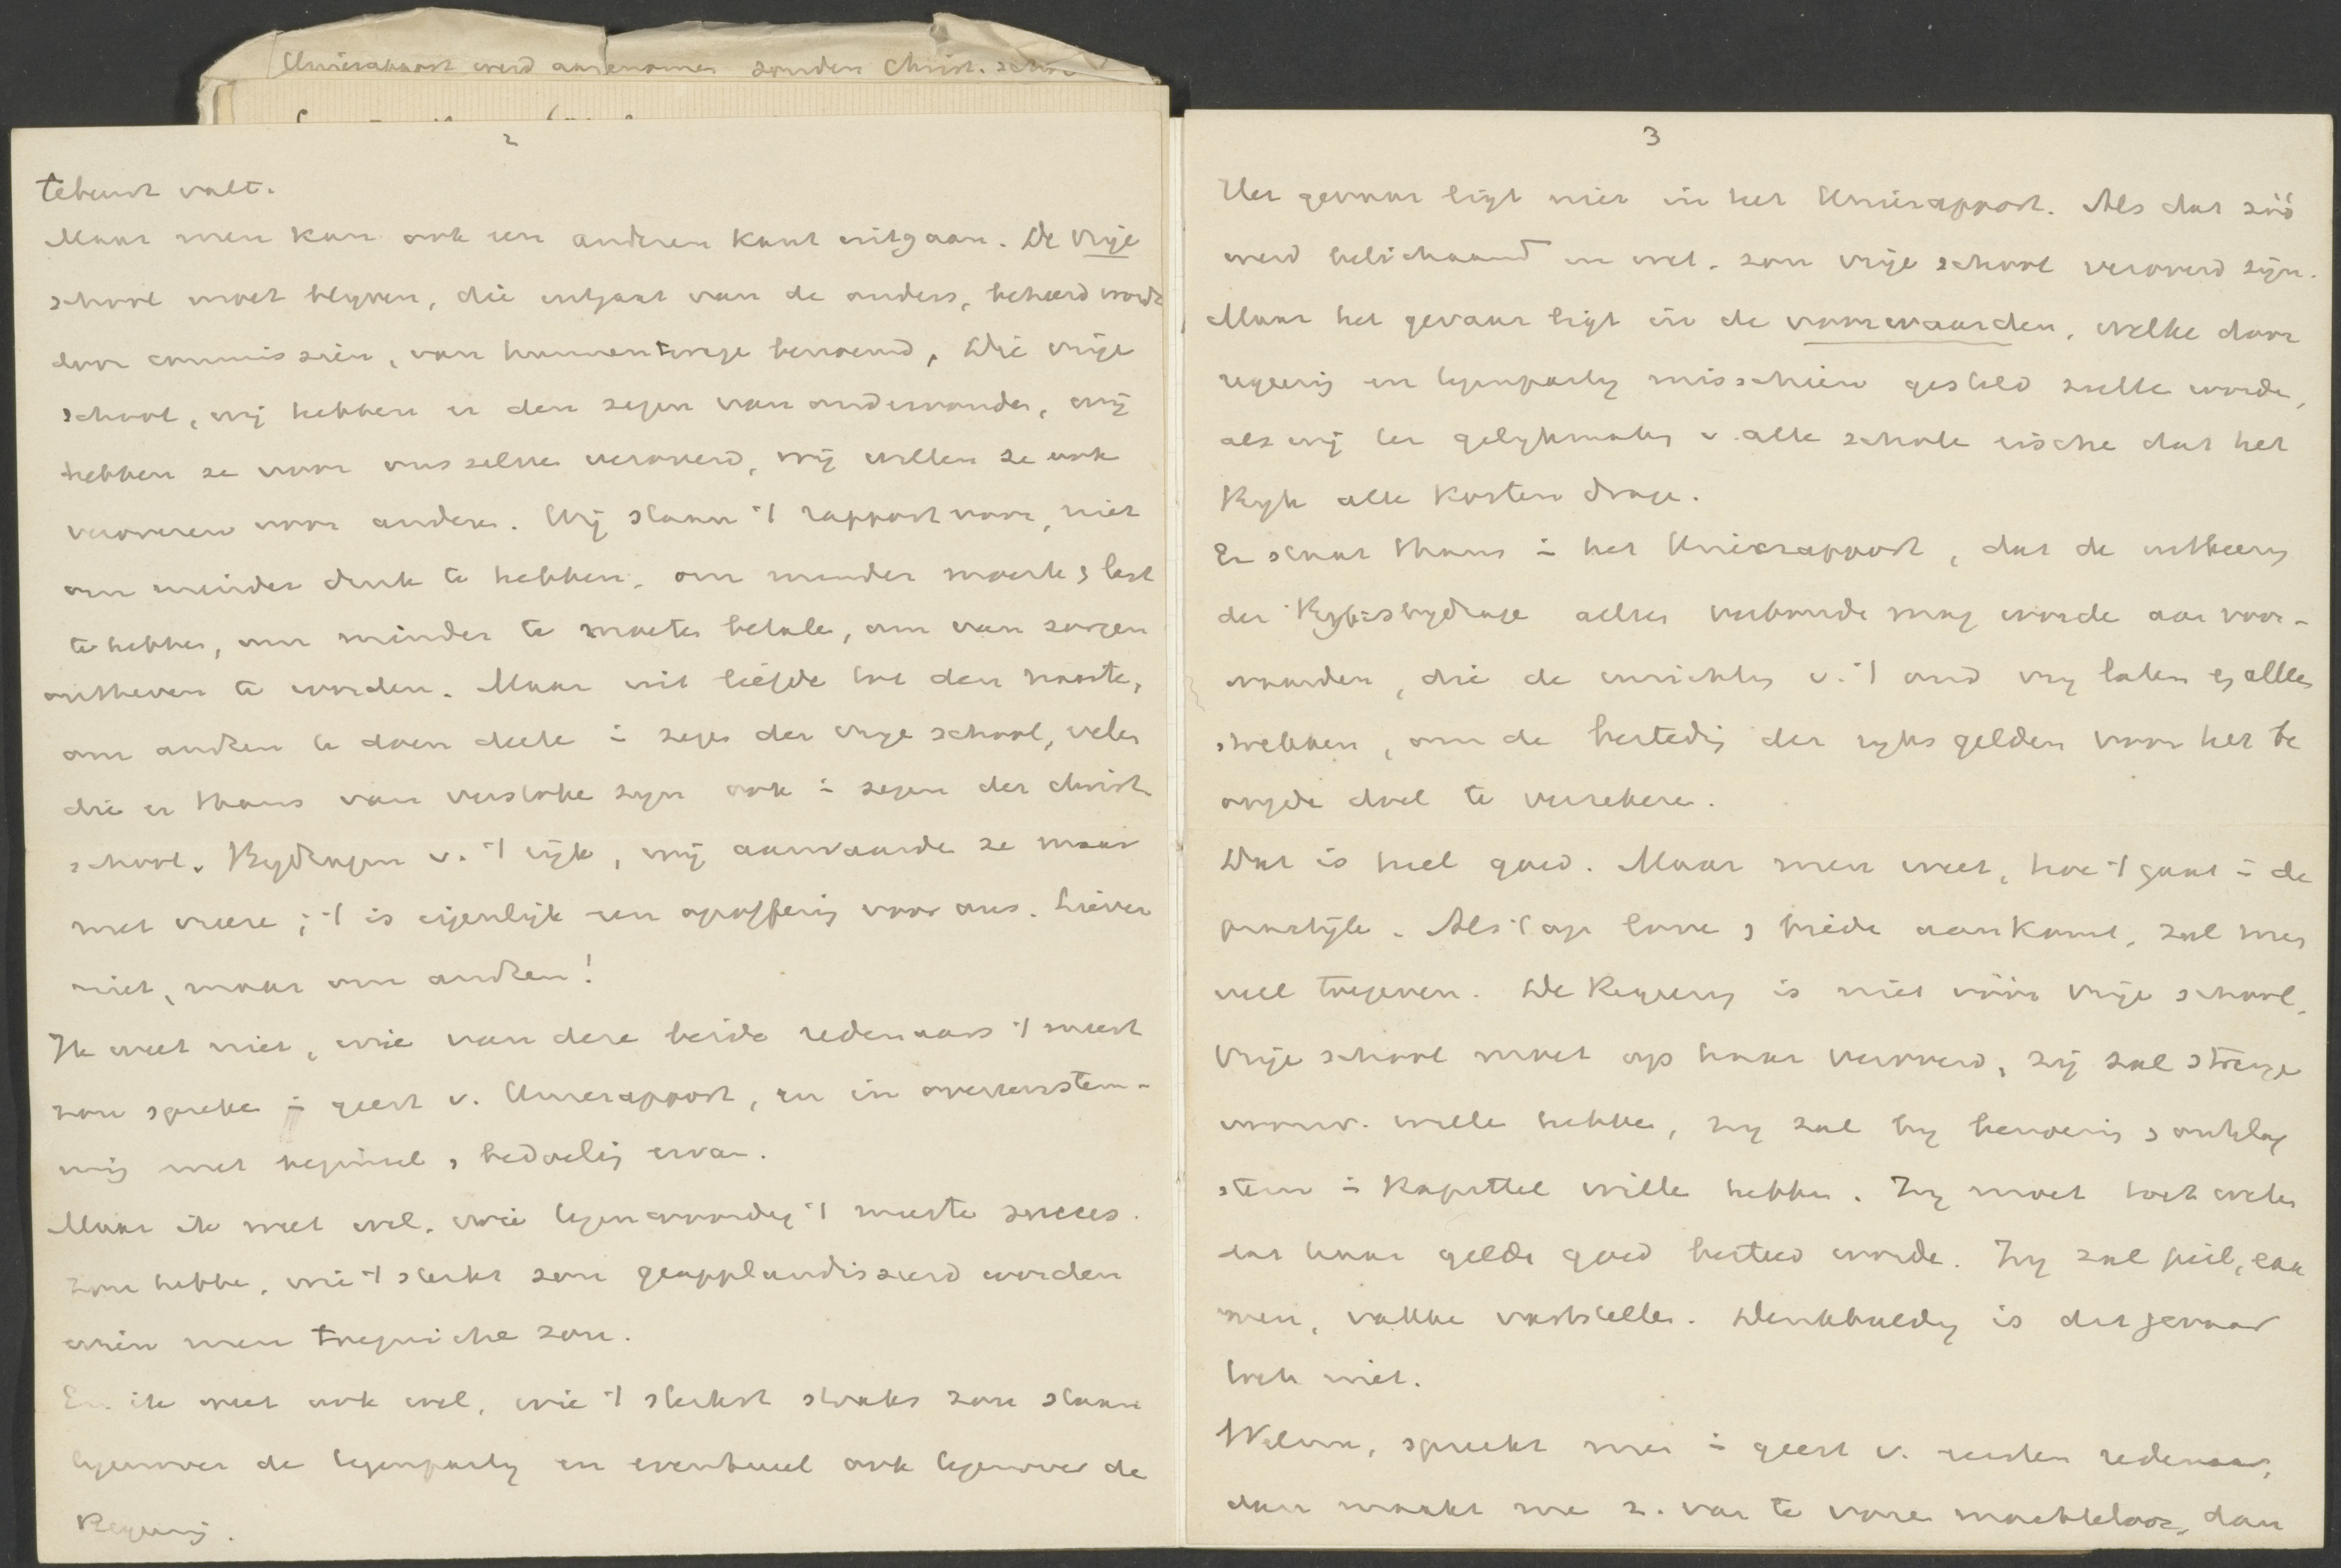 Unierapport werd aangenomen zonder Christ. school
2
tebeurt valt.
Maar men kan ook een anderen kant uitgaan. De vrije
school moet blijven, die uitgaat van de ouders, beheerd wordt
door commissiën, van hunnentwege benoemd. Die vrije
school, wij hebben er den zegen van ondervonden, wij
hebben ze voor ons zelve veroverd, wij willen ze ook
veroveren voor andere. Wij staan 't rapport voor, niet
om minder druk te hebben, om minder moeite & last
te hebben, om minder te moeten betale, om van zorgen
ontheven te worden. Maar uit liefde tot den naaste,
om andren te doen deele i zegen der vrije school, velen
die er thans van verstoke zijn ook i zegen der christ.
school. Bijdragen v. 't rijk, wij aanvaarde ze maar
met vreeze; 't is eigenlijk een opoffering voor ons. Liever
niet, maar om andren!
Ik weet niet, wie van deze beide redenaars 't meest
zou spreke i geest v. Unierapport, en in overeenstem-
ming met beginsel & bedoeling ervan.
Maar ik weet wel, wie tegenwoordig 't meeste succes
zou hebbe, wie 't sterkst zou geapplaudisseerd worden
wien men toejuiche zou.
En ik weet ook wel, wie 't sterkst straks zou staan
tegenover de tegenpartij en eventueel ook tegenover de
Regeering.
3
Het gevaar ligt niet in het Unierapport. Als dat zóó
werd belichaamd in wet, zou vrije school veroverd zijn.
Maar het gevaar ligt in de voorwaarden, welke door
regeering en tegenpartij misschien gesteld zulle worde,
als wij ter gelijkmaking v. alle schole eische dat het
Rijk alle kosten drage.
Er staat thans i het Unierapport, dat de uitkeering
der Rijksbijdrage alleen verbonde mag worde aan voor-
waarden, die de inrichting v. 't ond vrij laten & alleen
strekken, om de besteding der rijks gelden voor het be
oogde doel te verzekere.
Dat is heel goed. Maar men weet, hoe 't gaat i de
practijk. Als 't op love & biede aankomt, zal men
veel toegeven. De Regeering is niet vóór vrije school,
vrije school moet op haar veroverd, zij zal strenge
voorw. wille hebbe, zij zal bij benoeming & ontslag
stem i kapittel wille hebbe. Zij moet toch weten
dat haar gelde goed besteed worde. Zij zal peil, exa
men, vakke vaststelle. Denkbeeldig is dit gevaar
toch niet.
Welnu, spreekt men i geest v. eersten redenaar,
dan maakt me z. van te vore machteloos, dan